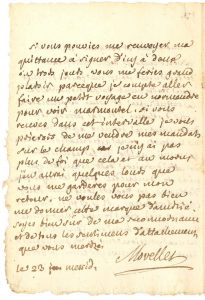 si vous pouviez me renvoyer, ma
quittance à signer d'ici à deux
ou trois jours, vous me feriez grand
plaisir parceque je compte aller
faire un petit voyage en normandie
pour voir marmontel; si vous
recevez dans cet intervalle je vous
prierois de me vendre mes mandats
sur le champ, car je n'y ai pas
plus de foi que cela et au moins
j'en aurai quelques louis que
vous me garderez pour mon
retour. ne voulez vous pas bien
me donner cette marque d'amitié.
soyez bien sur de ma reconnoissance
et de tous les sentimens d'attachement
que vous
Morellet
le 23